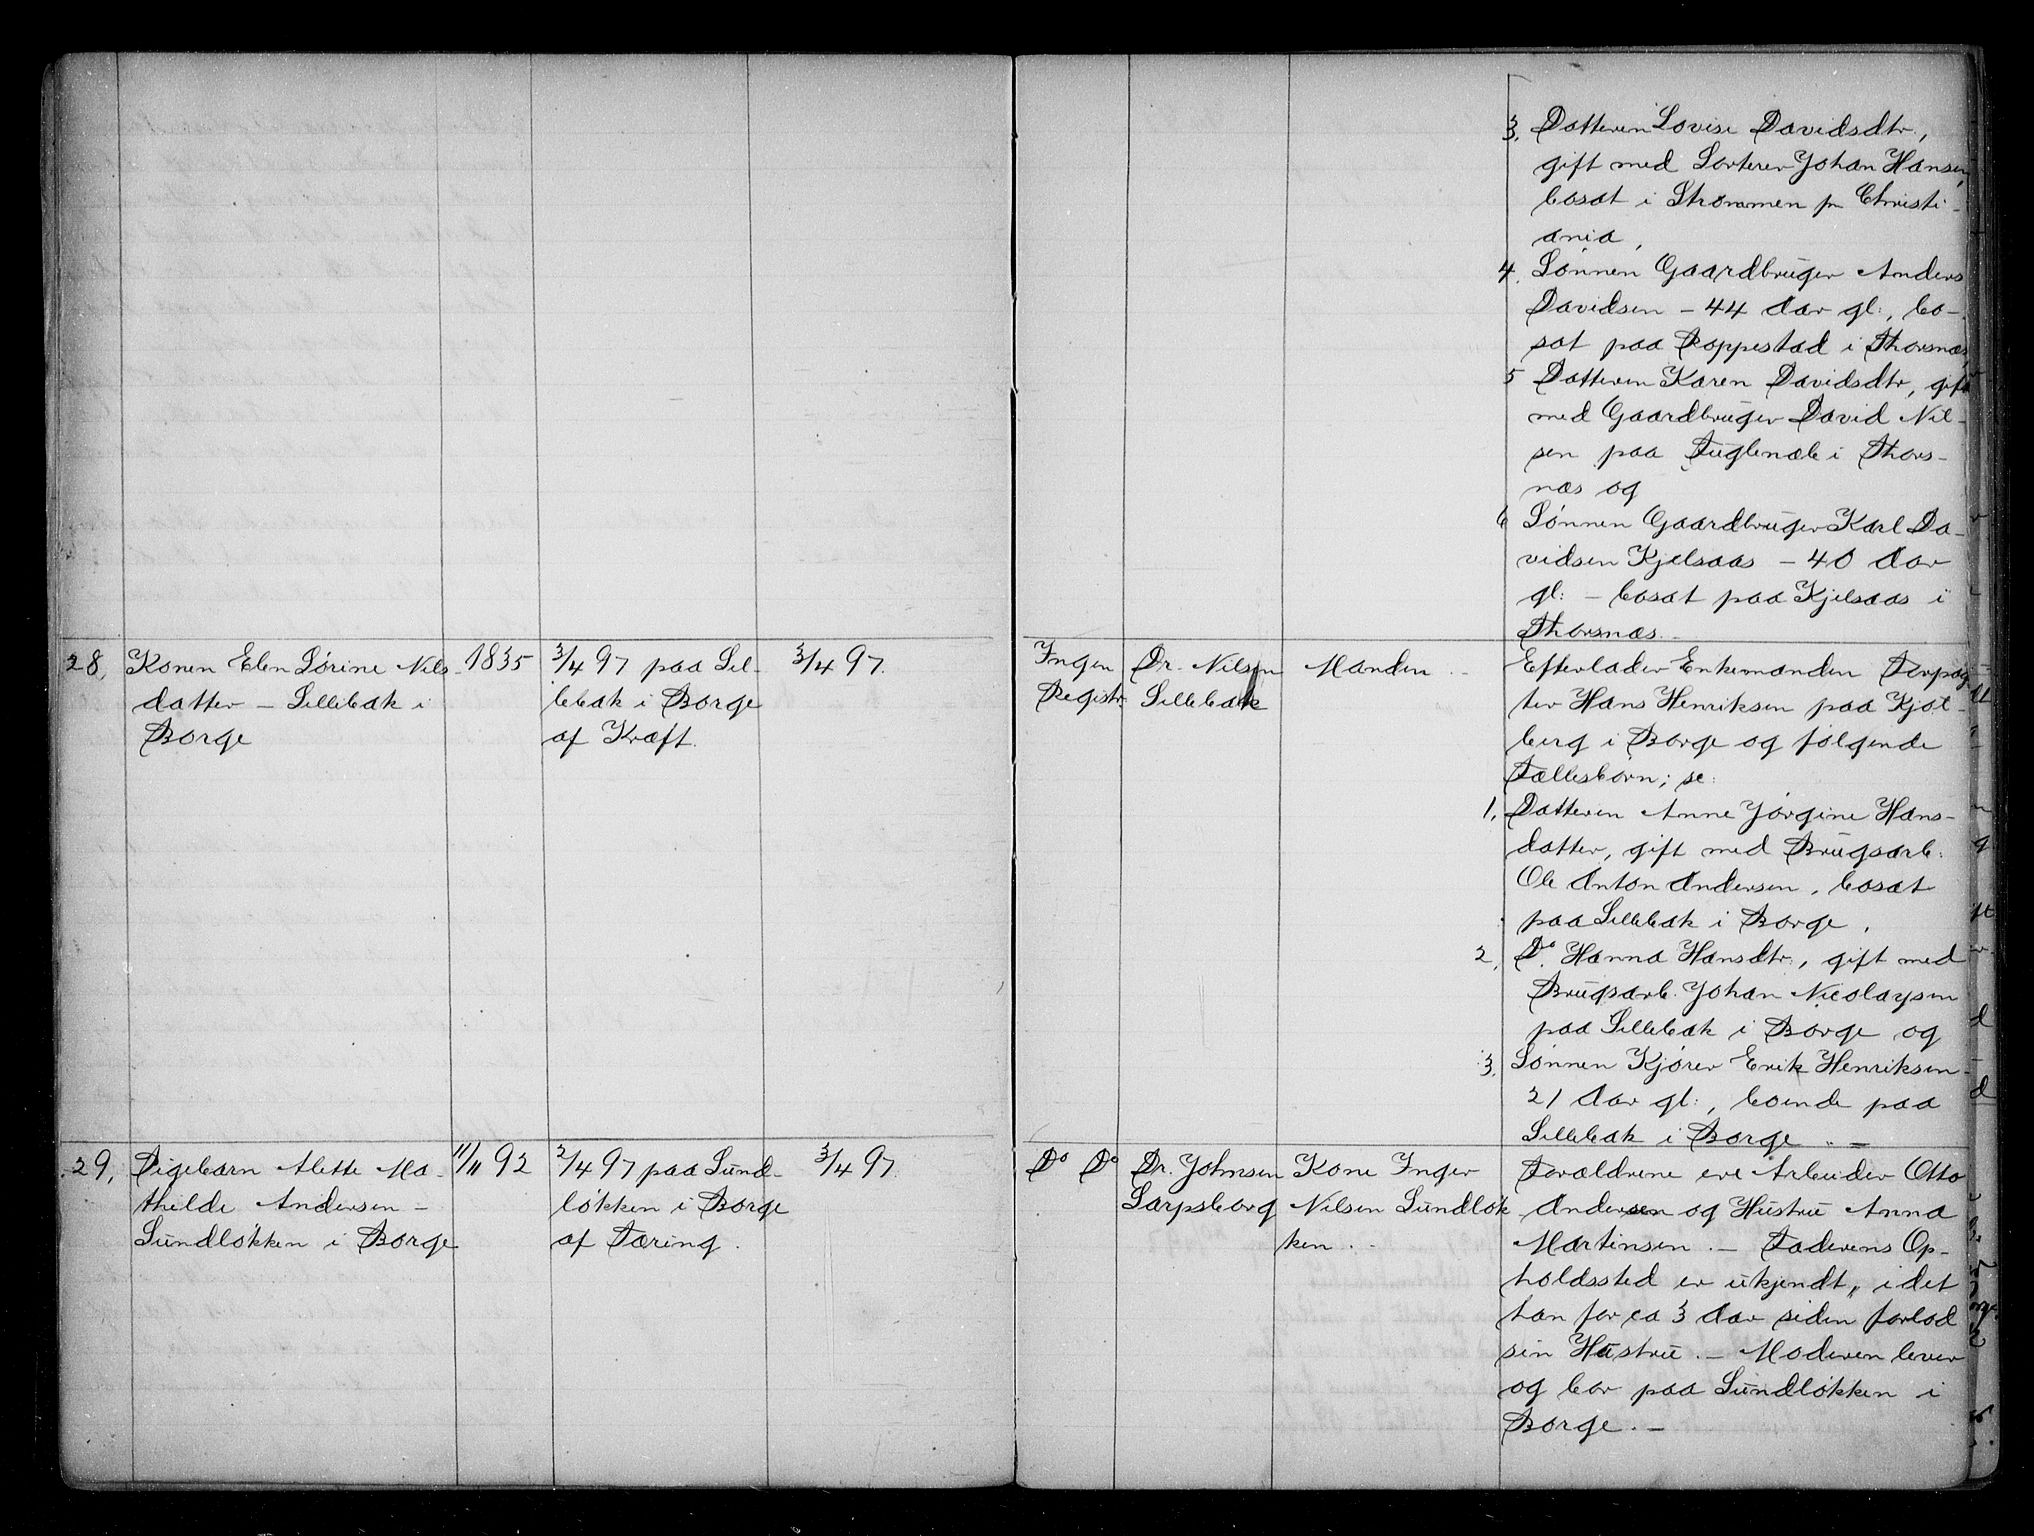 3. Datteren Lovise Davidsdtr,
gift med Sorterer Johan Hansen,
bosat i Strømmen pr Christi-
ania,
4. Sønnen Gaardbruger Anders
Davidsen - 44 Aar gl:, bo-
sat paa Roppestad i Thorsnæs,
5 Datteren Karen Davidsdtr, gift
med Gaardbruger David Nil-
sen paa Fuglenæb i Thors-
næs og
6 Sønnen Gaardbruger Karl Da-
vidsen Kjelsaas - 40 Aar
gl: - bosat paa Kjelsaas i
Thorsnæs.
28, Konen Elen Sørine Nils-
datter - Sellebak i
Borge
1835
3/4 97 paa Sel-
lebak i Borge
af Kræft.
3/4 97.
Ingen
Registr.
Dr. Nilsen
Sellebakk
Manden. -
Efterlader Enkemanden Forpag-
ter Hans Henriksen paa Kjøl-
berg i Borge og følgende
Fællesbørn; se:
1, Datteren Anne Jørgine Hans-
datter, gift med Brugsarb:
Ole Anton Andersen, bosat
paa Sellebak i Borge,
2, Do Hanna Hansdtr:, gift med
Brugsarb. Johan Nicolaysen
paa Sellebak i Borge og
3. Sønnen Kjører Erik Henriksen -
21 Aar gl:, boende paa
Sellebak i Borge. -
29, Pigebarn Alette Ma-
thilde Andersen -
Sundløkken i Borge
11/11 92
2/4 97 paa Sund-
løkken i Borge
af Tæring.
3/4 97.
Do Do
Dr. Johnsen
Sarpsborg
Kone Inger
Nilsen Sundløk
ken. -
Forældrene ere Arbeider Otto
Andersen og Hustru Anna
Martinsen. - Faderens Op-
holdssted er ukjendt, i det
han for ca 3 Aar siden forlod
sin Hustru. - Moderen lever
og bor paa Sundløkken i
Borge. -